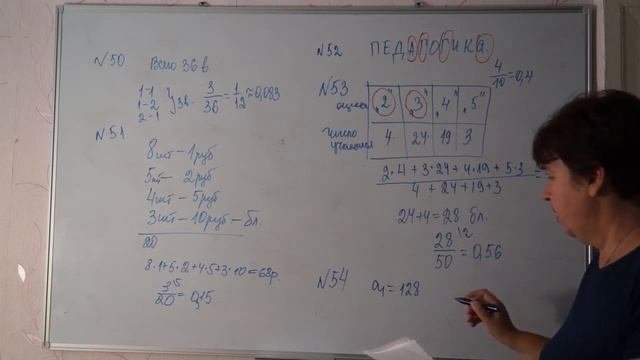 N50 Всего 36 в
1-1
1-2 } 3в. 3/36 = 1/12 ≈ 0,083
2-1
N51
8шт — 1руб
5шт — 2руб
4шт — 5руб
3шт — 10руб — бл.
20
8·1+5·2+4·5+3·10=68р.
3/20 = 0,15
N52 ПЕДАГОГИКА
4/10 = 0,4
N53
оценка „2" „3" „4" „5"
число 4 24 19 3
2·4+3·24+4·19+5·3 =
4+24+19+3
24+4=28 бл.
28/50 = 0,56
N54 a₁=128